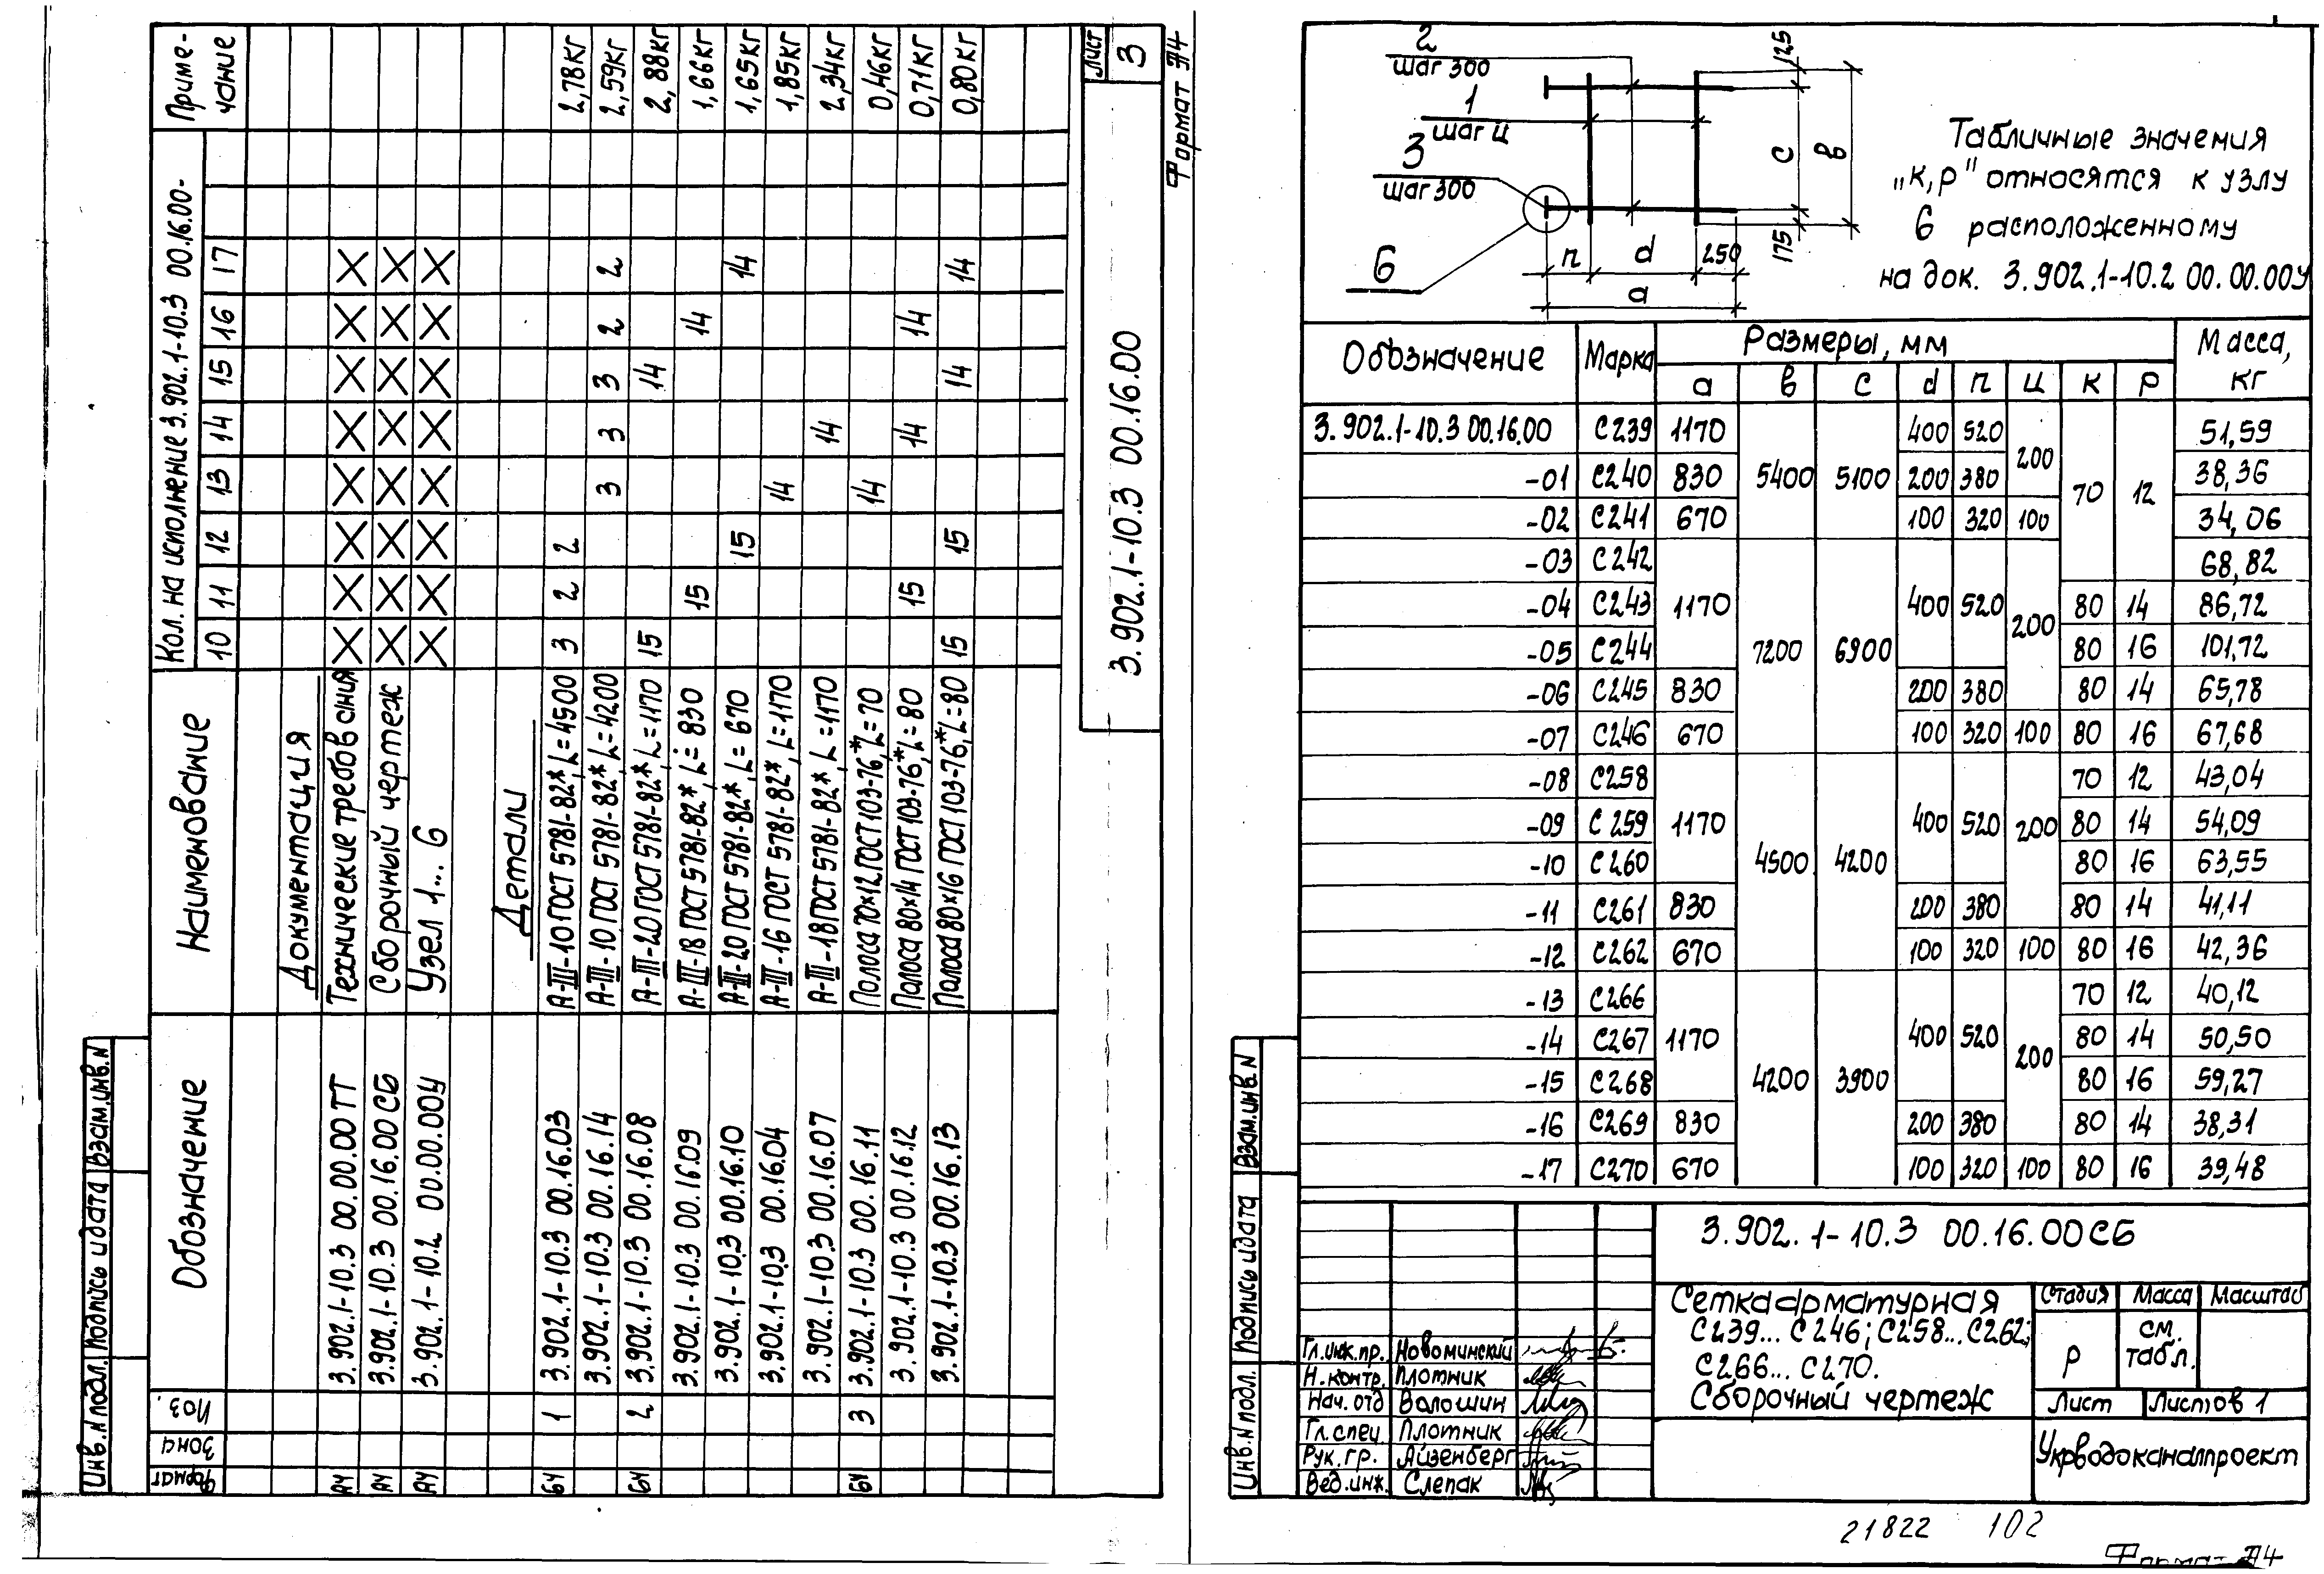 Обозначение Наименование Кол. на исполнение 3.902.1-10.3 00.16.00- Приме-
чание
Формат Зона Поз. 10 11 12 13 14 15 16 17
Документация
А4 3.902.1-10.3 00.00.00ТТ Технические требования X X X X X X X X
А4 3.902.1-10.3 00.16.00СБ Сборочный чертеж X X X X X X X X
А4 3.902.1-10.2 00.00.00У Узел 1... 6 X X X X X X X X
Детали
БЧ 1 3.902.1-10.3 00.16.03 А-III-10 ГОСТ 5781-82*, L=4500 3 2 2 2,78кг
3.902.1-10.3 00.16.14 А-III-10 ГОСТ 5781-82*, L=4200 3 3 3 2 2 2,59кг
БЧ 2 3.902.1-10.3 00.16.08 А-III-20 ГОСТ 5781-82*, L=1170 15 14 2,88кг
3.902.1-10.3 00.16.09 А-III-18 ГОСТ 5781-82*, L=830 15 14 1,66кг
3.902.1-10.3 00.16.10 А-III-20 ГОСТ 5781-82*, L=670 15 14 1,65кг
3.902.1-10.3 00.16.04 А-III-16 ГОСТ 5781-82*, L=1170 14 1,85кг
3.902.1-10.3 00.16.07 А-III-18 ГОСТ 5781-82*, L=1170 14 2,34кг
БЧ 3 3.902.1-10.3 00.16.11 Полоса 70×12 ГОСТ 103-76*, L=70 14 0,46кг
3.902.1-10.3 00.16.12 Полоса 80×14 ГОСТ 103-76*, L=80 15 14 14 0,71кг
3.902.1-10.3 00.16.13 Полоса 80×16 ГОСТ 103-76*, L=80 15 15 14 14 0,80кг
3.902.1-10.3 00.16.00 Лист
3
Формат А4
Инв. N подл. Подпись и дата Взам. инв. N
2
шаг 300
1
шаг ц
3
шаг 300
6
п d 250
а
125
с в
175
Табличные значения
„к,р" относятся к узлу
6 расположенному
на док. 3.902.1-10.2 00.00.00У
Обозначение Марка Размеры, мм Масса,
кг
а в с d п ц к р
3.902.1-10.3 00.16.00 С239 1170 5400 5100 400 520 200 70 12 51,59
-01 С240 830 200 380 38,36
-02 С241 670 100 320 100 34,06
-03 С242 1170 7200 6900 400 520 200 68,82
-04 С243 80 14 86,72
-05 С244 80 16 101,72
-06 С245 830 200 380 80 14 65,78
-07 С246 670 100 320 100 80 16 67,68
-08 С258 1170 4500 4200 400 520 200 70 12 43,04
-09 С259 80 14 54,09
-10 С260 80 16 63,55
-11 С261 830 200 380 80 14 41,11
-12 С262 670 100 320 100 80 16 42,36
-13 С266 1170 4200 3900 400 520 200 70 12 40,12
-14 С267 80 14 50,50
-15 С268 80 16 59,27
-16 С269 830 200 380 80 14 38,31
-17 С270 670 100 320 100 80 16 39,48
3.902.1-10.3 00.16.00СБ
Сетка арматурная
С239... С246; С258... С262;
С266... С270.
Сборочный чертеж
Стадия Масса Масштаб
Р см.
табл.
Лист Листов 1
Укрводоканалпроект
Гл.инж.пр. Новоминский
Н.контр. Плотник
Нач.отд Волошин
Гл.спец. Плотник
Рук.гр. Айзенберг
Вед.инж. Слепак
Инв. N подл. Подпись и дата Взам.инв.N
21822 102
Формат А4